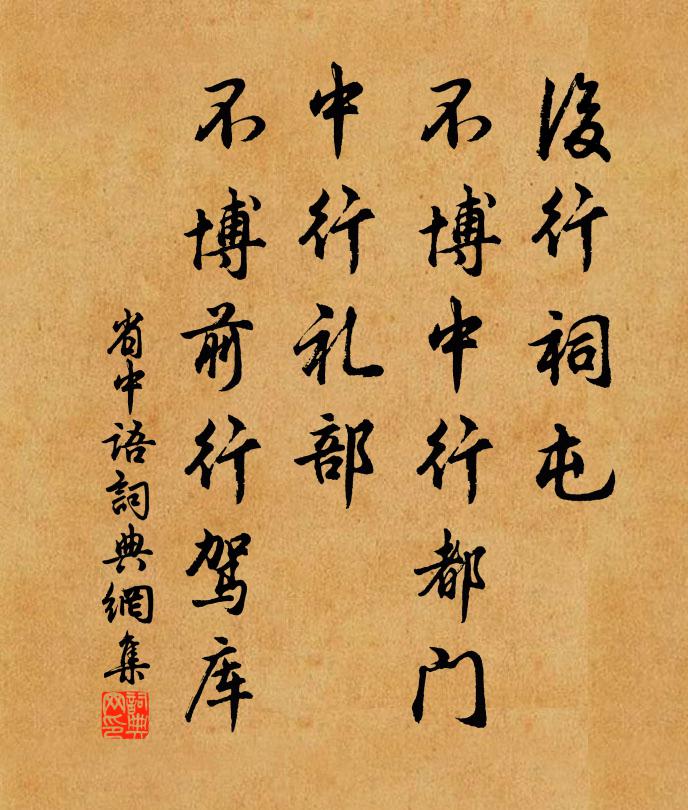 後行祠屯
不博中行都门
中行礼部
不博前行驾库
省中语詞典網集
詞典
网印